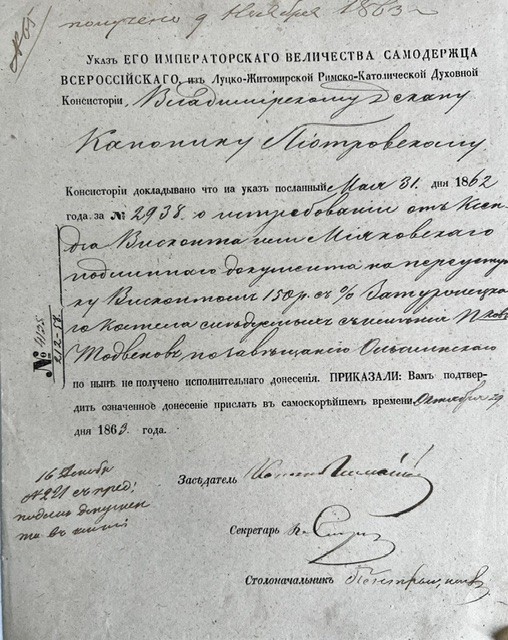 получено 9 Ноября 1863 г
№ 65
Указъ ЕГО ИМПЕРАТОРСКАГО ВЕЛИЧЕСТВА САМОДЕРЖЦА
ВСЕРОССІЙСКАГО, изъ Луцко-Житомирской Римско-Католической Духовной
Консисторіи, Владимірскому Декану
Канонику Піотровскому
Консисторіи докладывано что на указъ посланный Мая 31. дня 1862
года за № 2938. о истребованіи отъ Ксен-
дза Висконта или Міяковскаго
подлиннаго документа на переуступ-
ку Висконтомъ 150 р. съ % Затурцецка-
го Костела слѣдуемыхъ съ имѣнія
по завѣщанію Ольшинскаго
по нынѣ не получено исполнительнаго донесенія. ПРИКАЗАЛИ: Вамъ подтвер-
дить означенное донесеніе прислать въ самоскорѣйшемъ времени, Октября 29
дня 1863. года.
№ 4125
16 Декабр
№ 221 съ пред:
подлин докумен
та въ
Засѣдатель
Секретарь
Столоначальникъ